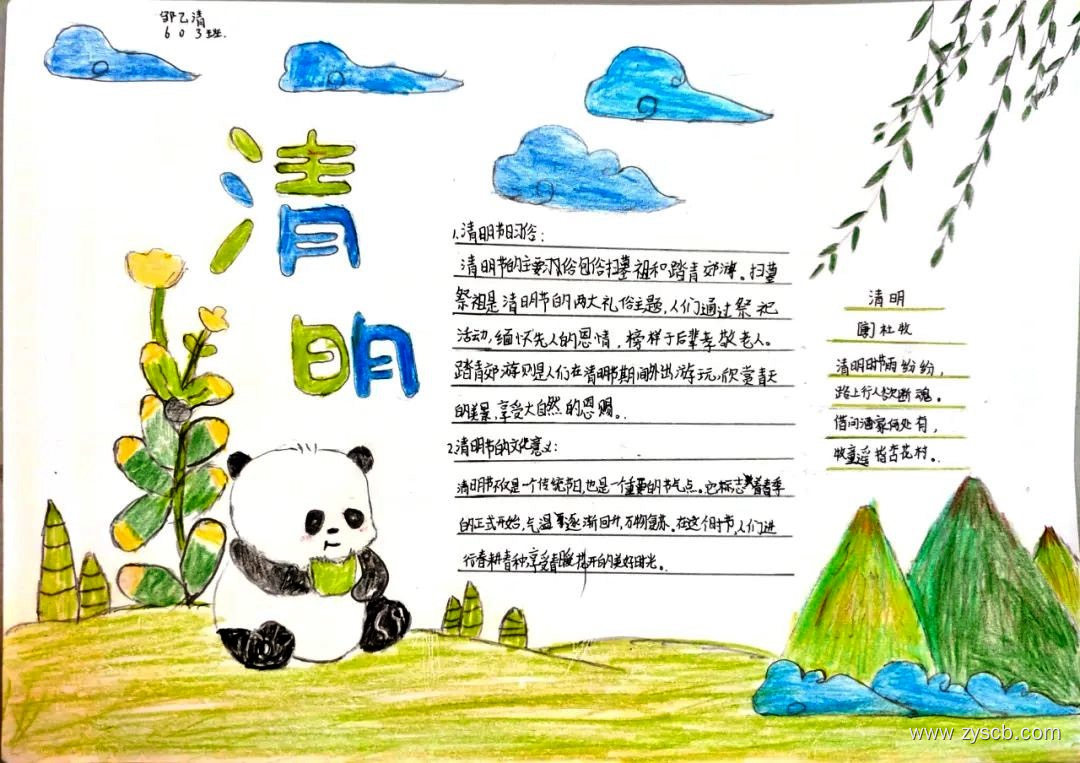 邹乙清
603班.
清
明
1.清明节日习俗:
清明节的主要习俗包俗扫墓祖和踏青郊游。扫墓
祭祖是清明节的两大礼俗主题,人们通过祭祀
活动,缅怀先人的恩情,榜样于后辈孝敬老人。
踏青郊游则是人们在清明节期间外出游玩,欣赏春天
的美景,享受大自然的恩赐。
2.清明节的文化意义:
清明节不仅是一个传统节日,也是一个重要的节气点。它标志着春季
的正式开始,气温逐渐回升,万物复苏。在这个时节,人们进
行春耕春种,享受春暖花开的美好时光。
清明
杜牧
清明时节雨纷纷,
路上行人欲断魂。
借问酒家何处有,
牧童遥指杏花村。
www.zyscb.com